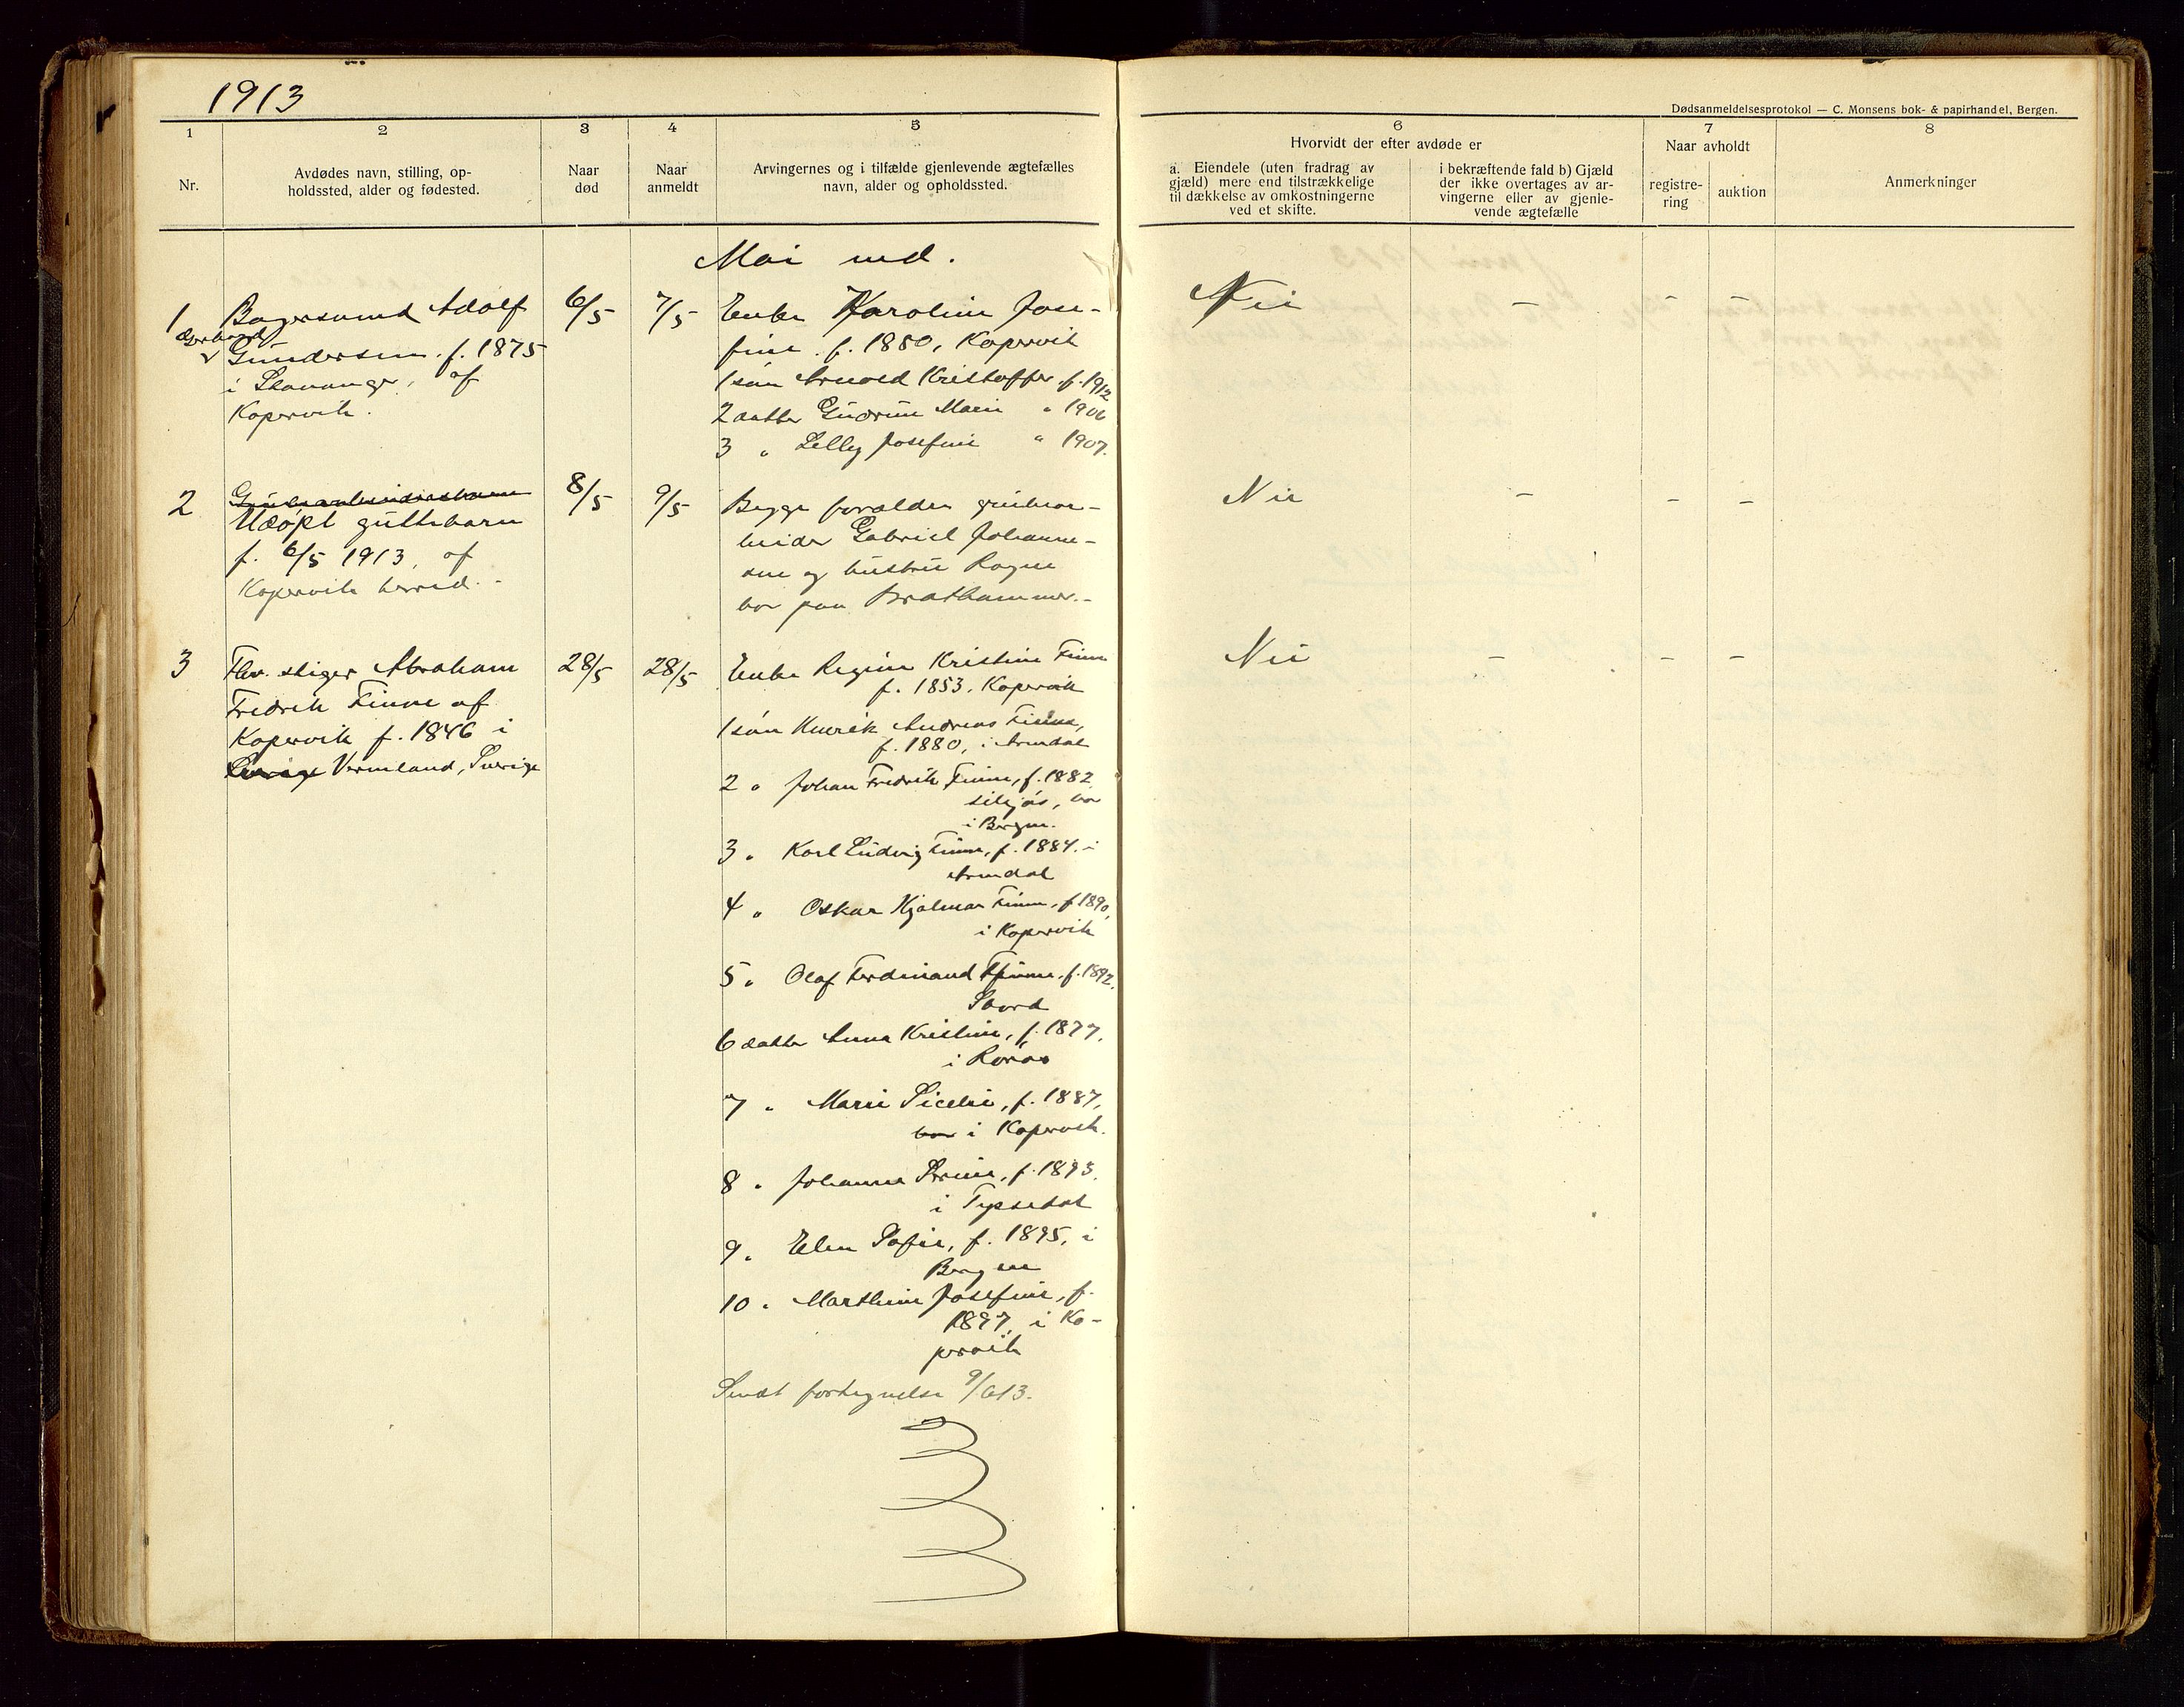 1913
Dødsanmeldelsesprotokol — C. Monsens bok- & papirhandel, Bergen.
1
2
3
4
5
6
7
8
Nr.
Avdødes navn, stilling, op-
holdssted, alder og fødested.
Naar
død
Naar
anmeldt
Arvingernes og i tilfælde gjenlevende ægtefælles
navn, alder og opholdssted.
Hvorvidt der efter avdøde er
a. Eiendele (uten fradrag av
gjæld) mere end tilstrækkelige
til dækkelse av omkostningerne
ved et skifte.
i bekræftende fald b) Gjæld
der ikke overtages av ar-
vingerne eller av gjenle-
vende ægtefælle
Naar avholdt
registre-
ring
auktion
Anmerkninger
Mai md.
1
Adolf
Gundersen. f. 1875
i Stavanger, af
Kopervik.
6/5
7/5
Enke Karoline Jose-
fine. f. 1880, Kopervik
1 søn Arnold Kristoffer f. 1912
2 datter Gudrun Marie " 1906
3 " Lelly Josefine " 1907.
Nei
–
–
–
2
Udøpt guttebarn
f. 6/5 1913, af
Kopervik herred.
8/5
9/5
Begge forældre grubear-
beider Gabriel Johanne-
sen og hustru Ragne
bor paa Brathammer.
Nei
–
–
–
3
stiger Abraham
Fredrik Finne af
Kopervik f. 1846 i
Sverige Vermland, Sverige
28/5
28/5
Enke Regine Kristine Finne
f. 1853, Kopervik
1 søn Henrik Andreas Finne,
f. 1880, i Arendal
2 " Johan Fredrik Finne, f. 1882,
tilsjøs, bor
i Bergen.
3 " Karl Ludvig Finne, f. 1884. i
Arendal
4 " Oskar Hjalmar Finne, f 1890,
i Kopervik
5 " Olaf Ferdinand Finne, f. 1892.
Stord
6 datter Anna Kristine, f. 1877,
i Røros
7 " Marie f. 1887,
bor i Kopervik.
8 " Johanne f. 1893.
i Tyssedal
9 " Elen Sofie, f. 1895, i
Bergen
10 " Marthine Josefine, f.
1897, i Ko-
pervik
Nei
–
–
–
Sendt fortegnelse 9/6 13.